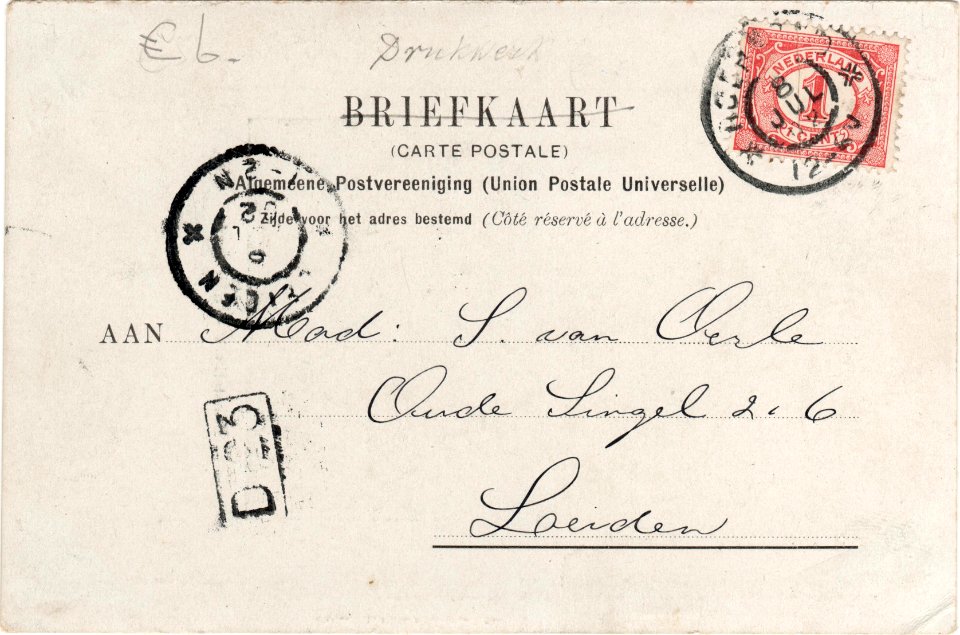 € 6.-
Drukwerk
BRIEFKAART
(CARTE POSTALE)
Algemeene Postvereeniging (Union Postale Universelle)
Zijde voor het adres bestemd (Côté réservé à l'adresse.)
NEDERLAND
1
CENT
AAN Mad: S. van Oerle
Oude Singel 206
Leiden